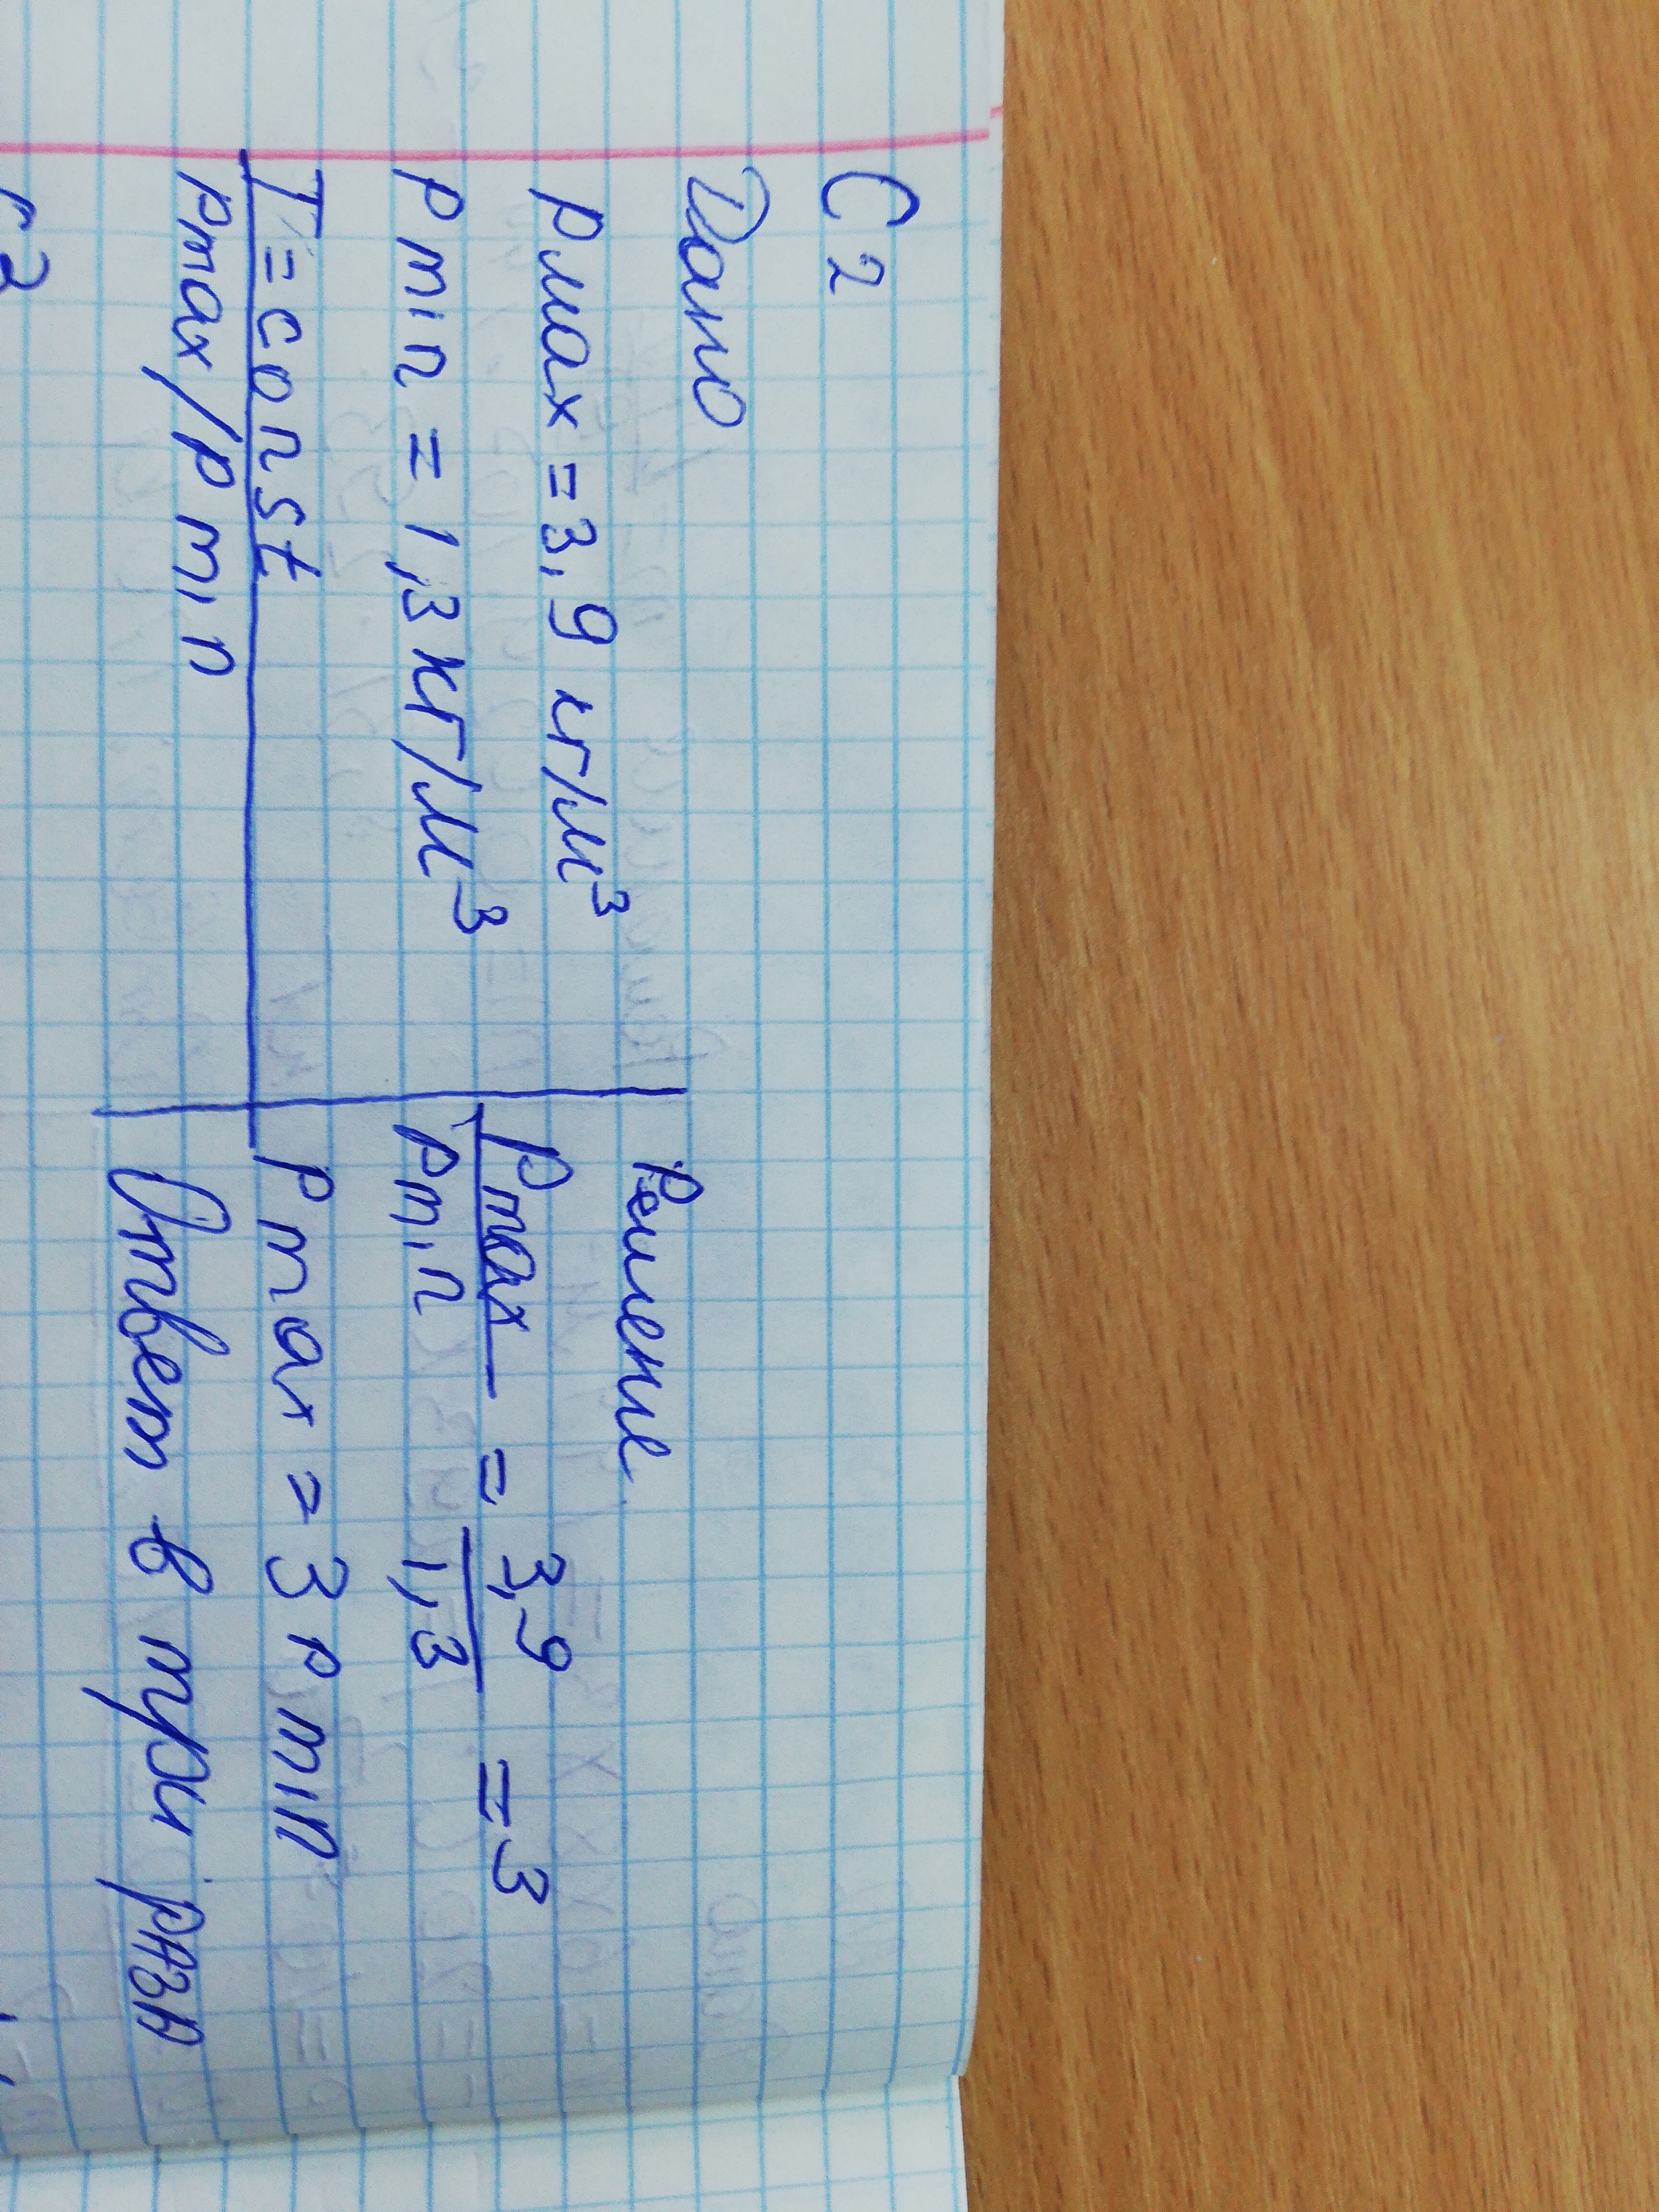 С2
Дано
pмах = 3,9 кг/м³
pmin = 1,3 кг/м³
T = const
pmax/pmin
Решение
pmax/pmin = 3,9/1,3 = 3
pmax = 3 pmin
Ответ в три раза